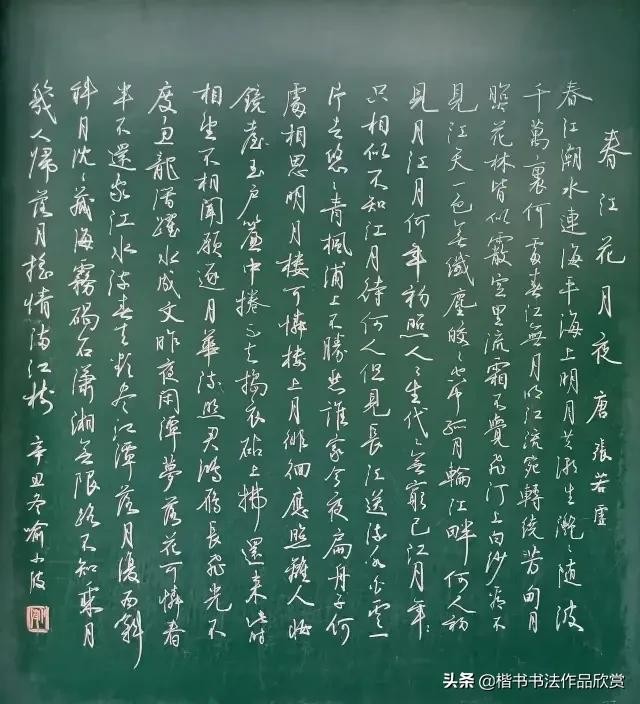 春江花月夜 唐 張若虛
春江潮水連海平海上明月共潮生灩〻随波
千萬裏何處春江無月明江流宛轉繞芳甸月
照花林皆似霰空里流霜不覺飛汀上白沙看不
見江天一色無纖塵皎〻空中孤月輪江畔何人初
見月江月何年初照人〻生代〻無窮已江月年〻
只相似不知江月待何人但見長江送流水白雲一
片去悠〻青楓浦上不勝愁誰家今夜扁舟子何
處相思明月樓可憐樓上月徘徊應照離人妝
鏡臺玉戶簾中捲不去搗衣砧上拂還来此時
相望不相聞願逐月華流照君鴻雁長飛光不
度魚龍潛躍水成文昨夜閑潭夢落花可憐春
半不還家江水流春去欲盡江潭落月復西斜
斜月沈〻藏海霧碣石瀟湘無限路不知乘月
幾人歸落月搖情滿江樹 辛丑冬喻小波
头条 @楷书书法作品欣赏